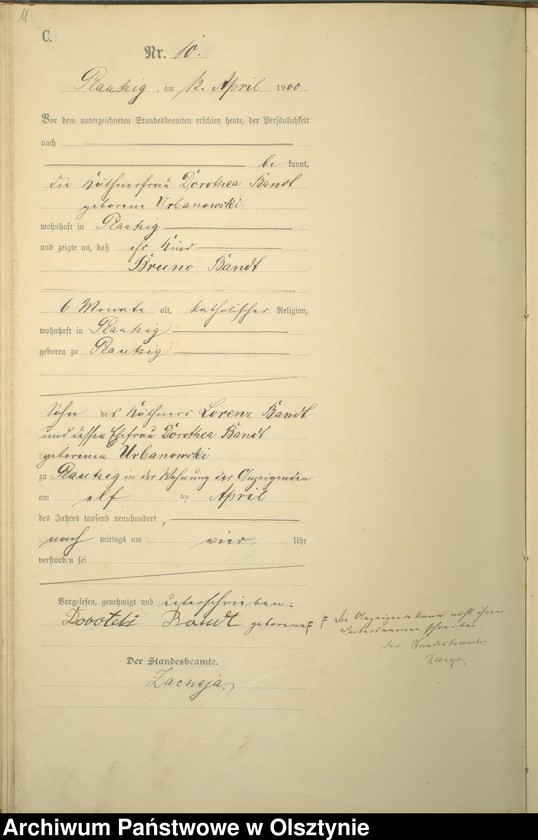 11
C.
Nr. 10.
Plautzig, am 12. April 1900.
Vor dem unterzeichneten Standesbeamten erschien heute, der Persönlichkeit
nach
be kannt,
die Käthnerfrau Dorothea Bandt
geborene Urbanowski
wohnhaft in Plautzig
und zeigte an, daß ihr Kind
Bruno Bandt
6 Monate alt, katholischer Religion,
wohnhaft in Plautzig
geboren zu Plautzig
Sohn des Käthners Lorenz Bandt
und dessen Ehefrau Dorothea Bandt
geborenen Urbanowski
zu Plautzig in der Wohnung der Anzeigenden
am elf ten April
des Jahres tausend neunhundert,
nach mittags um vier Uhr
verstorben sei
Vorgelesen, genehmigt und unterschrieben:
Bandt geborene
Die Anzeigende kann nicht ihren
schreiben.
Der Standesbeamte.
Der Standesbeamte.
Zacheja
Archiwum Państwowe w Olsztynie